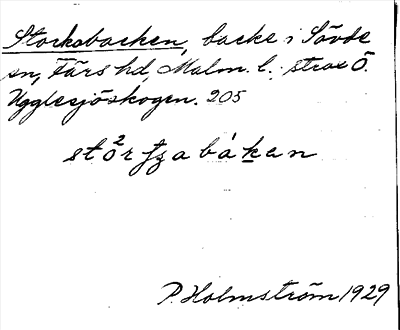 Storksbacken, backe i Sövde
sn, Färs hd, Malm. l.; strax Ö.
Ugglesjöskogen. 205
stó²rʃʒabákan
P. Holmström 1929